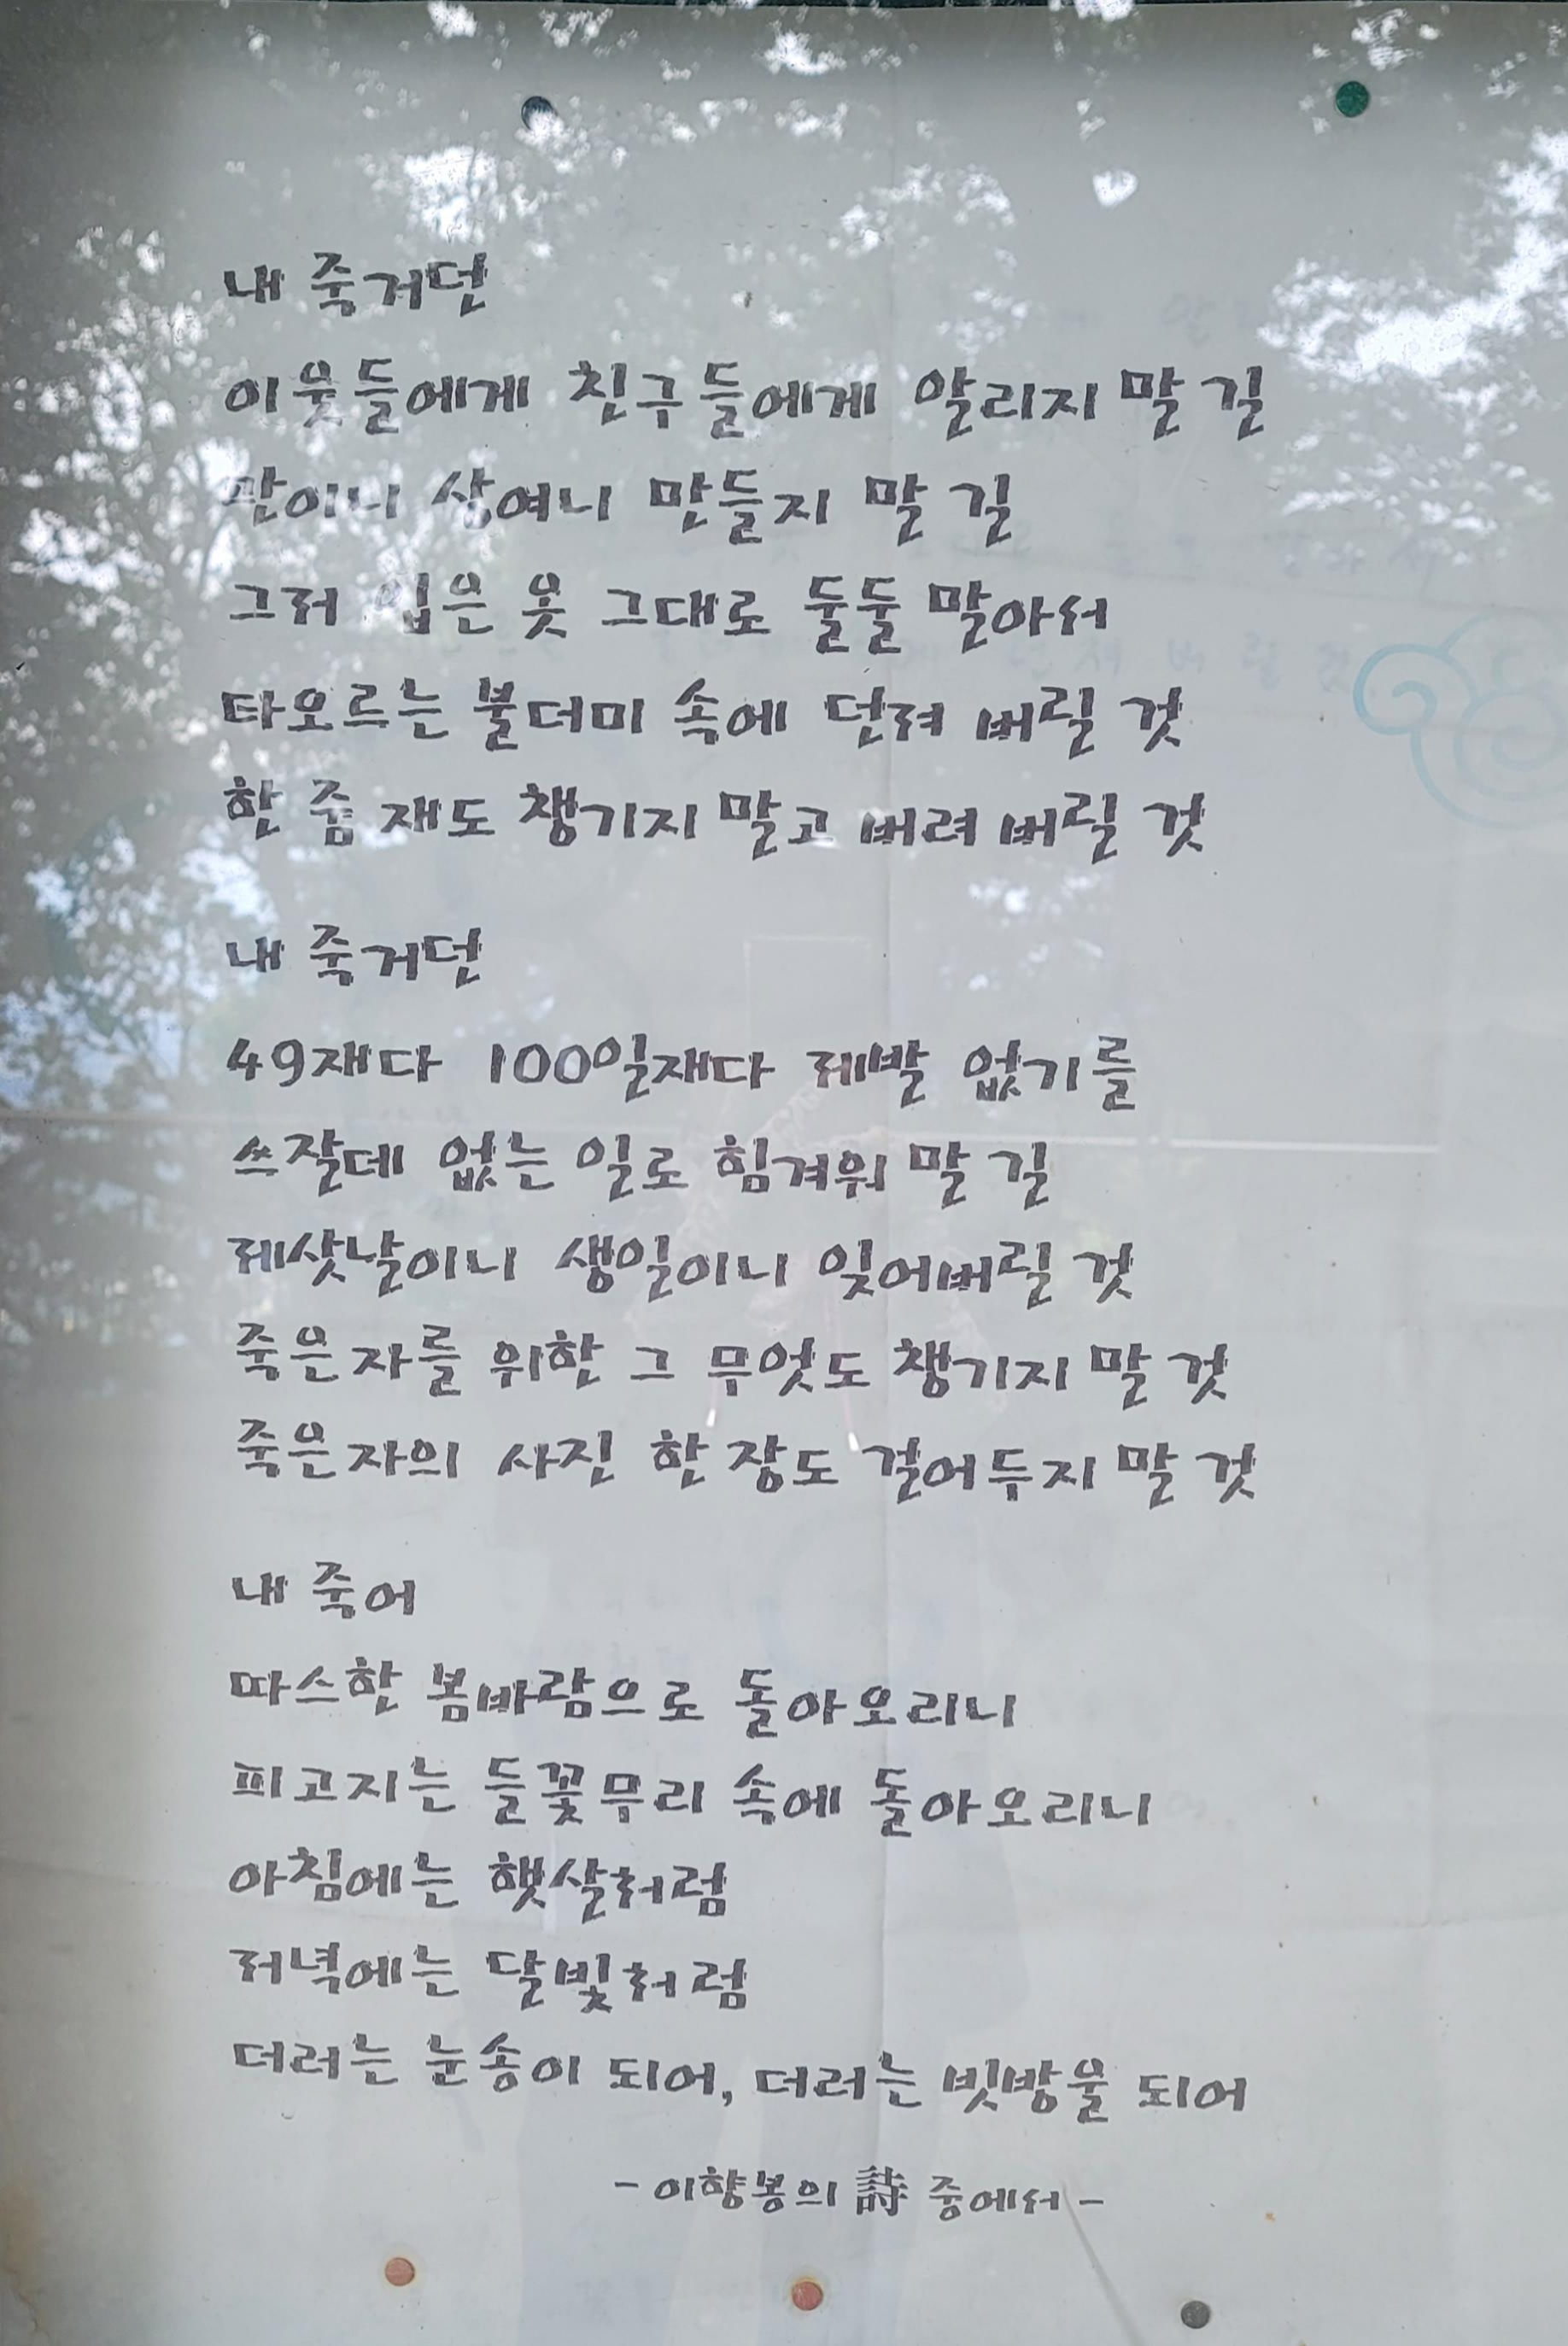 내 죽거던
이웃들에게 친구들에게 알리지 말 길
관이니 상여니 만들지 말 길
그저 입은 옷 그대로 둘둘 말아서
타오르는 불더미 속에 던져 버릴 것
한 줌 재도 챙기지 말고 버려 버릴 것
내 죽거던
49재다 100일재다 제발 없기를
쓰잘데 없는 일로 힘겨워 말 길
제삿날이니 생일이니 잊어버릴 것
죽은자를 위한 그 무엇도 챙기지 말 것
죽은자의 사진 한 장도 걸어두지 말 것
내 죽어
따스한 봄바람으로 돌아오리니
피고지는 들꽃무리 속에 돌아오리니
아침에는 햇살처럼
저녁에는 달빛처럼
더러는 눈송이 되어, 더러는 빗방울 되어
- 이향봉의 詩 중에서 -